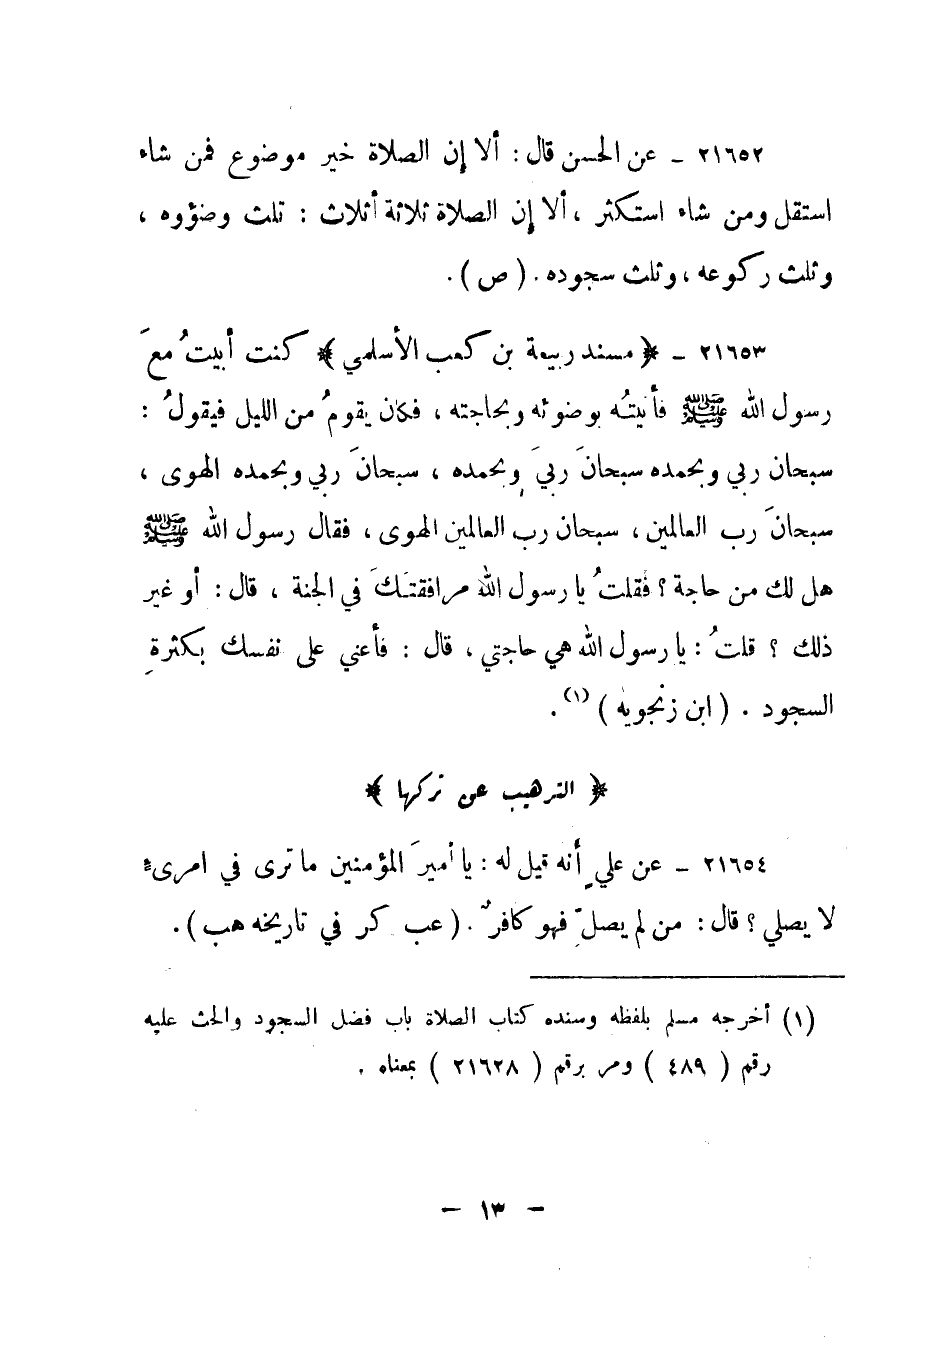 ٢١٦٥٢ ـ عن الحسن قال : ألا إن الصلاة خير موضوع فمن شاء
استقل ومن شاء استكثر ، ألا إن الصلاة ثلاثة أثلاث : ثلث وضؤوه ،
وثلث ركوعه ، وثلث سجوده . ( ص ) .
٢١٦٥٣ ـ ﴿ مسند ربيعة بن كعب الأسلمي ﴾ كنت أبيتُ معَ
رسول الله ﷺ فأتيتُه بوضوئه وبحاجته ، فكان يقومُ من الليل فيقولُ :
سبحان ربي وبحمده سبحانَ ربيَ وبحمده ، سبحانَ ربي وبحمده الهوى ،
سبحانَ رب العالمين ، سبحان رب العالمين الهوى ، فقال رسول الله ﷺ
هل لك من حاجة ؟ فقلتُ يا رسول الله مرافقتَكَ في الجنة ، قال : أو غير
ذلك ؟ قلتُ : يا رسول الله هي حاجتي ، قال : فأعني على نفسك بكثرةِ
السجود . ( ابن زنجويه ) (١) .
﴿ الترهيب عن تركها ﴾
٢١٦٥٤ ـ عن عليٍ أنه قيل له : يا أميرَ المؤمنين ما ترى في امرىء
لا يصلي ؟ قال : من لم يصلّ فهو كافرٌ . ( عب كر في تاريخه هب ) .
(١) أخرجه مسلم بلفظه وسنده كتاب الصلاة باب فضل السجود والحث عليه
رقم ( ٤٨٩ ) ومر برقم ( ٢١٦٢٨ ) بمعناه .
ـ ١٣ ـ